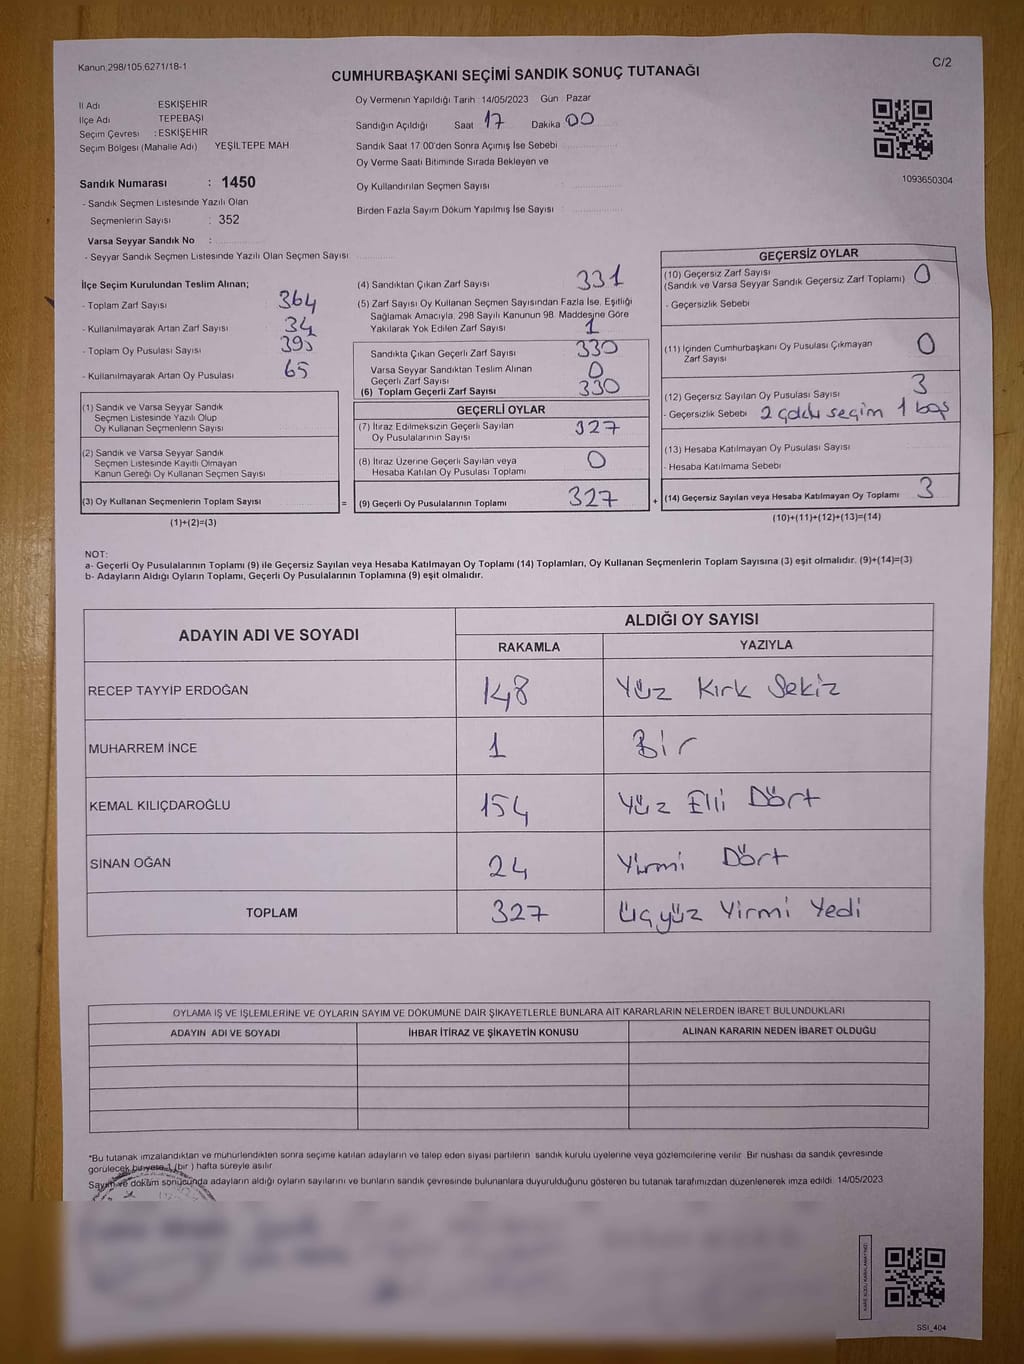 Kanun.298/105.6271/18-1
C/2
CUMHURBAŞKANI SEÇİMİ SANDIK SONUÇ TUTANAĞI
İl Adı ESKİŞEHİR
İlçe Adı TEPEBAŞI
Seçim Çevresi : ESKİŞEHİR
Seçim Bölgesi (Mahalle Adı) YEŞİLTEPE MAH.
Oy Vermenin Yapıldığı Tarih 14/05/2023 Gün Pazar
Sandığın Açıldığı Saat 17 Dakika 00
Sandık Saat 17.00'den Sonra Açımış İse Sebebi
Oy Verme Saati Bitiminde Sırada Bekleyen ve
Oy Kullandırılan Seçmen Sayısı
Birden Fazla Sayım Döküm Yapılmış İse Sayısı
1093650304
Sandık Numarası : 1450
- Sandık Seçmen Listesinde Yazılı Olan
Seçmenlerin Sayısı : 352
Varsa Seyyar Sandık No :
- Seyyar Sandık Seçmen Listesinde Yazılı Olan Seçmen Sayısı
İlçe Seçim Kurulundan Teslim Alınan;
- Toplam Zarf Sayısı 364
- Kullanılmayarak Artan Zarf Sayısı 34
- Toplam Oy Pusulası Sayısı 395
- Kullanılmayarak Artan Oy Pusulası 65
(1) Sandık ve Varsa Seyyar Sandık
Seçmen Listesinde Yazılı Olup
Oy Kullanan Seçmenlerin Sayısı
(2) Sandık ve Varsa Seyyar Sandık
Seçmen Listesinde Kayıtlı Olmayan
Kanun Gereği Oy Kullanan Seçmen Sayısı
(3) Oy Kullanan Seçmenlerin Toplam Sayısı =
(1)+(2)=(3)
(4) Sandıktan Çıkan Zarf Sayısı 331
(5) Zarf Sayısı Oy Kullanan Seçmen Sayısından Fazla İse, Eşitliği
Sağlamak Amacıyla, 298 Sayılı Kanunun 98. Maddesine Göre
Yakılarak Yok Edilen Zarf Sayısı 1
Sandıkta Çıkan Geçerli Zarf Sayısı 330
Varsa Seyyar Sandıktan Teslim Alınan
Geçerli Zarf Sayısı 0
(6) Toplam Geçerli Zarf Sayısı 330
GEÇERLİ OYLAR
(7) İtiraz Edilmeksizin Geçerli Sayılan
Oy Pusulalarının Sayısı 327
(8) İtiraz Üzerine Geçerli Sayılan veya
Hesaba Katılan Oy Pusulası Toplamı 0
(9) Geçerli Oy Pusulalarının Toplamı 327 +
GEÇERSİZ OYLAR
(10) Geçersiz Zarf Sayısı
(Sandık ve Varsa Seyyar Sandık Geçersiz Zarf Toplamı) 0
- Geçersizlik Sebebi
(11) İçinden Cumhurbaşkanı Oy Pusulası Çıkmayan
Zarf Sayısı 0
(12) Geçersiz Sayılan Oy Pusulası Sayısı 3
- Geçersizlik Sebebi 2 çoklu seçim 1 boş
(13) Hesaba Katılmayan Oy Pusulası Sayısı
- Hesaba Katılmama Sebebi
(14) Geçersiz Sayılan veya Hesaba Katılmayan Oy Toplamı 3
(10)+(11)+(12)+(13)=(14)
NOT:
a- Geçerli Oy Pusulalarının Toplamı (9) ile Geçersiz Sayılan veya Hesaba Katılmayan Oy Toplamı (14) Toplamları, Oy Kullanan Seçmenlerin Toplam Sayısına (3) eşit olmalıdır. (9)+(14)=(3)
b- Adayların Aldığı Oyların Toplamı, Geçerli Oy Pusulalarının Toplamına (9) eşit olmalıdır.
ADAYIN ADI VE SOYADI
ALDIĞI OY SAYISI
RAKAMLA YAZIYLA
RECEP TAYYİP ERDOĞAN 148 Yüz Kırk Sekiz
MUHARREM İNCE 1 Bir
KEMAL KILIÇDAROĞLU 154 Yüz Elli Dört
SİNAN OĞAN 24 Yirmi Dört
TOPLAM 327 Üçyüz Yirmi Yedi
OYLAMA İŞ VE İŞLEMLERİNE VE OYLARIN SAYIM VE DÖKÜMÜNE DAİR ŞİKAYETLERLE BUNLARA AİT KARARLARIN NELERDEN İBARET BULUNDUKLARI
ADAYIN ADI VE SOYADI İHBAR İTİRAZ VE ŞİKAYETİN KONUSU ALINAN KARARIN NEDEN İBARET OLDUĞU
*Bu tutanak imzalandıktan ve mühürlendikten sonra seçime katılan adayların ve talep eden siyasi partilerin sandık kurulu üyelerine veya gözlemcilerine verilir. Bir nüshası da sandık çevresinde
görülecek bir yere 1 (bir ) hafta süreyle asılır.
Sayım ve döküm sonucunda adayların aldığı oyların sayılarını ve bunların sandık çevresinde bulunanlara duyurulduğunu gösteren bu tutanak tarafımızdan düzenlenerek imza edildi. 14/05/2023
SSI_404